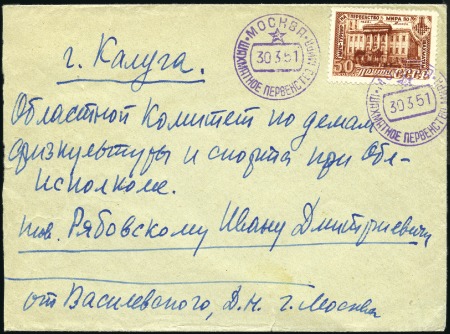 МОСКВА
30 3 51
ШАХМАТНОЕ ПЕРВЕНСТВО МИРА
ПЕРВЕНСТВО МИРА ПО
50
ПОЧТА СССР
30 3 51
ШАХМАТНОЕ ПЕРВЕНСТВО МИРА
г. Калуга.
Областной Комитет по делам
физкультуры и спорта при Обл-
исполкоме.
тов. Рябовскому Ивану Дмитриевичу
от Василевского, Д.Н. г. Москва